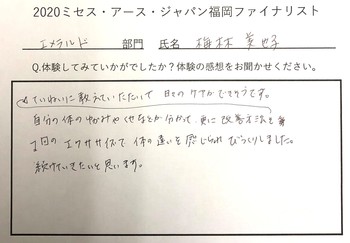 2020ミセス・アース・ジャパン福岡ファイナリスト
エメラルド 部門 氏名 梅林 美也子
Q.体験してみていかがでしたか？体験の感想をお聞かせください。
ていねいに教えていただいて 日々のケアができそうです。
自分の体のゆがみやくせなどが分かって、更に改善方法を
1回のエクササイズで体の違いを感じられ びっくりしました。
続けていきたいと思います。